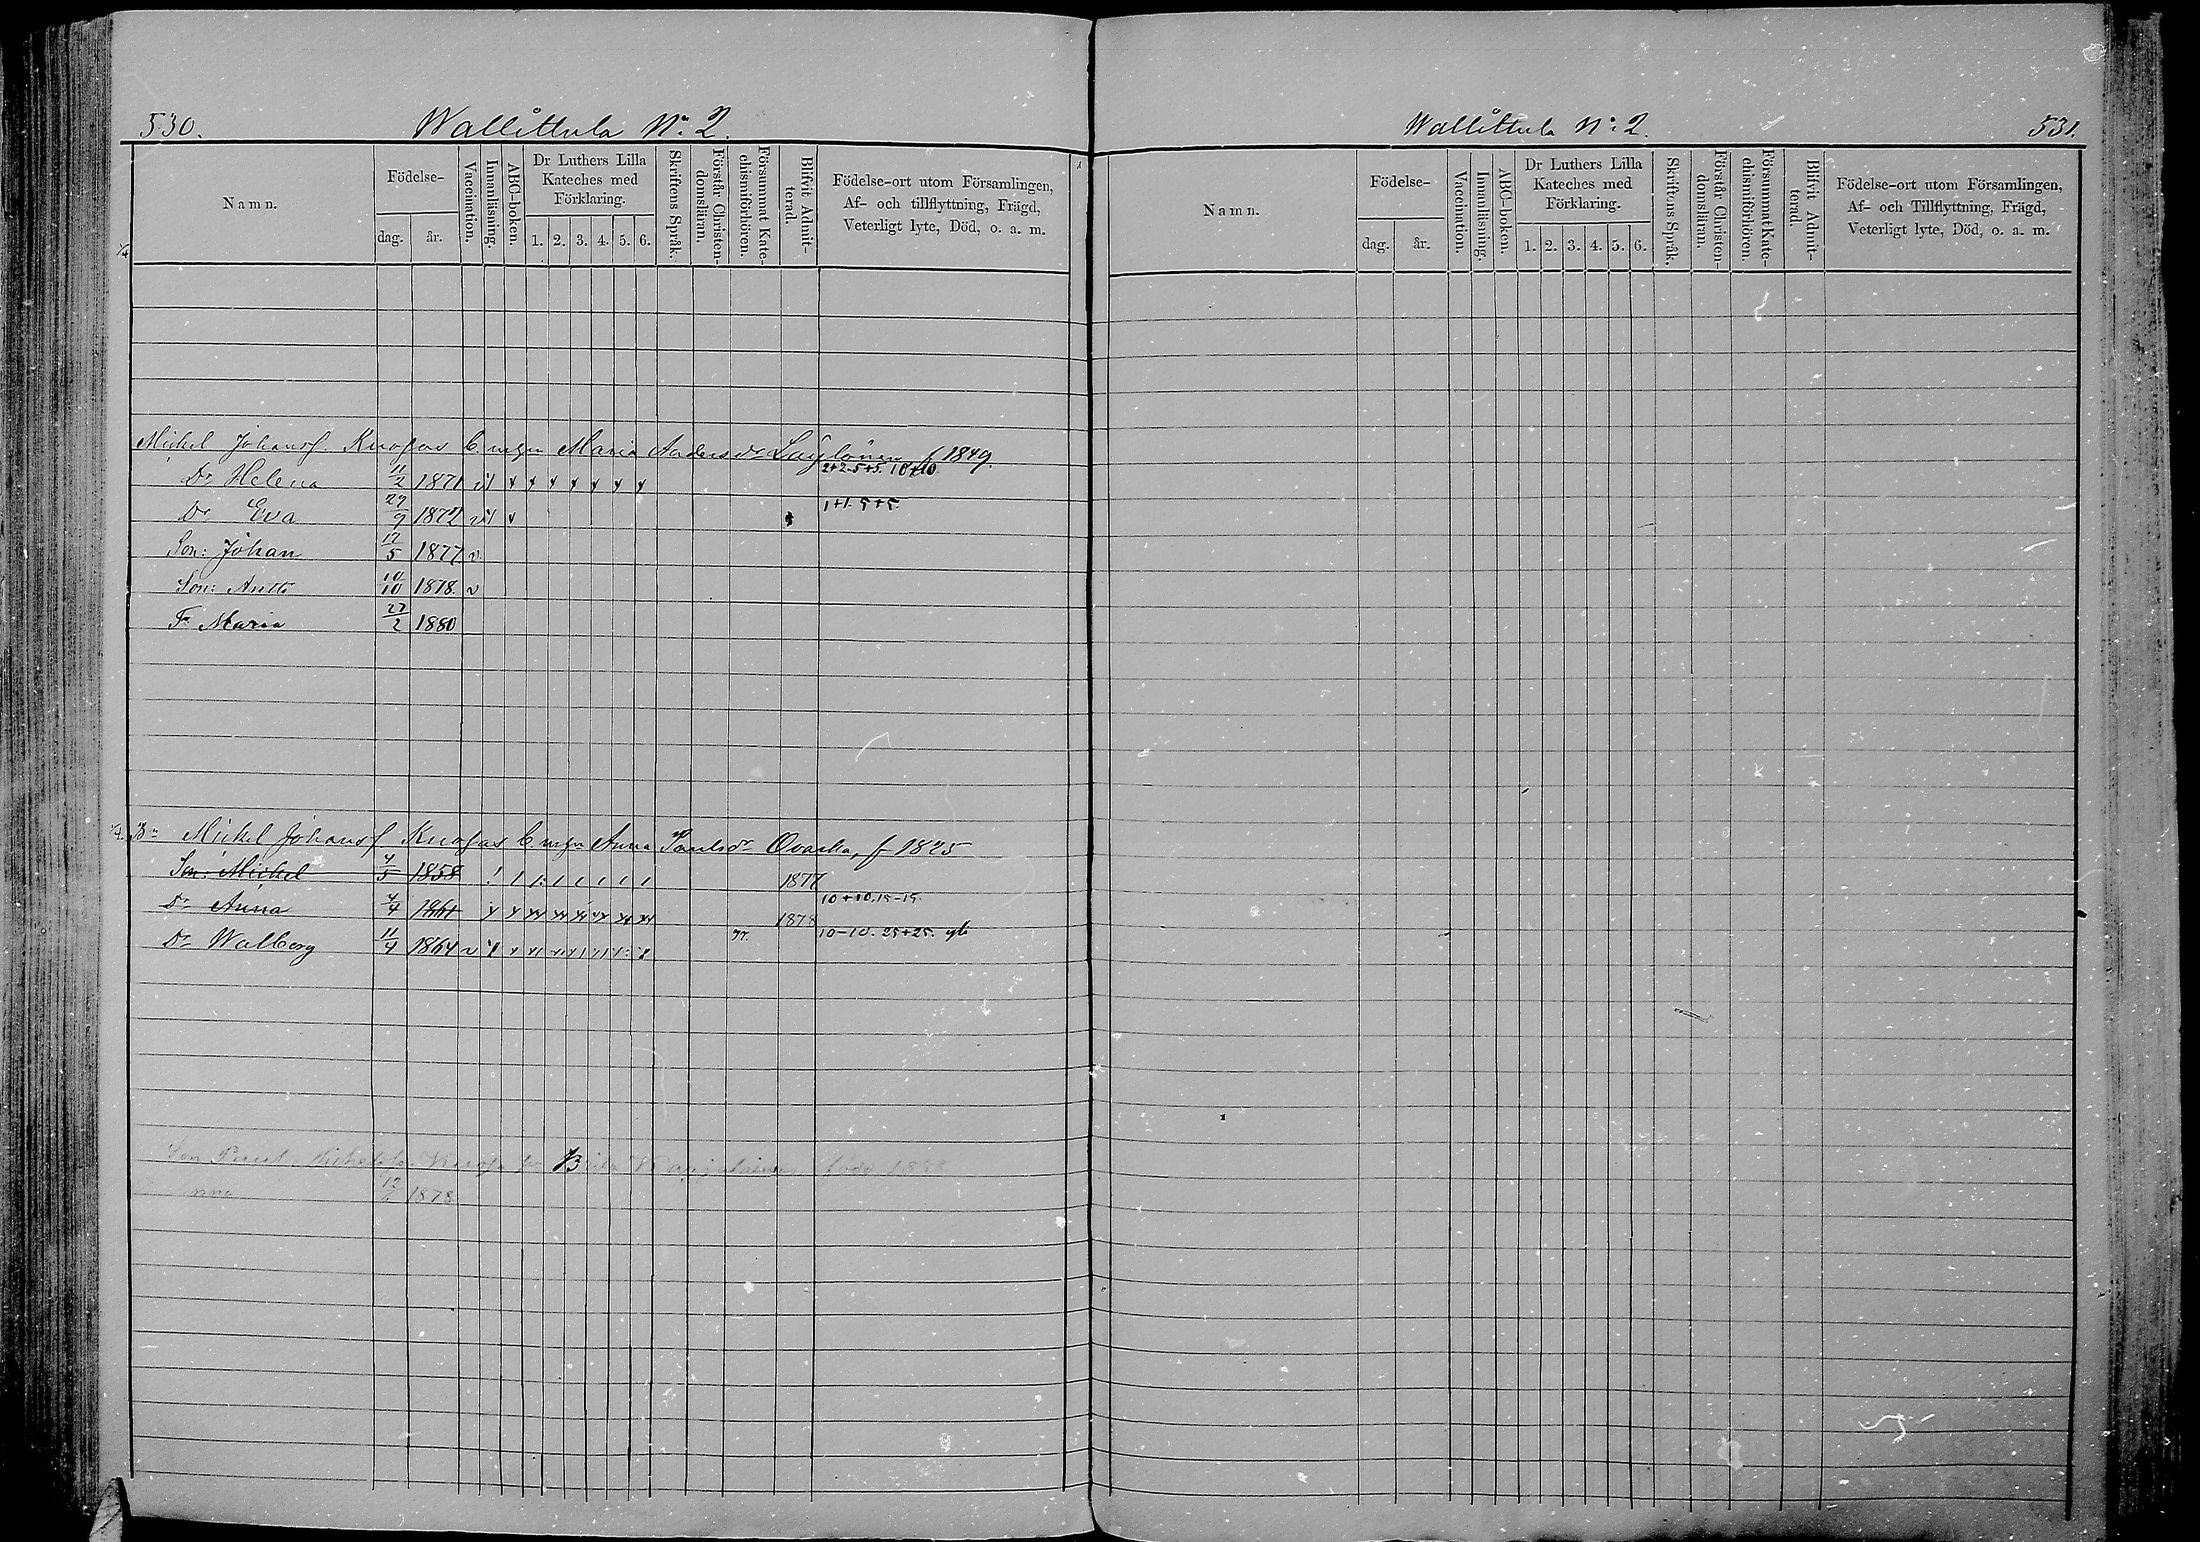 530.
Wallittula No 2.
Namn.
Födelse-
dag.
år.
Vaccination.
Innanläsning.
ABC-boken.
Dr Luthers Lilla
Kateches med
Förklaring.
1. 2. 3. 4. 5. 6.
Skriftens Språk.
Förstår Christen-
domsläran.
Försummat Kate-
chismiförhören.
Blifvit Admit-
terad.
Födelse-ort utom Församlingen,
Af- och tillflyttning, Frägd,
Veterligt lyte, Död, o. a. m.
Michel Johansf. Kuosas Maria Andersdr f 1849.
Dr Helena 11/2 1871 2+2.5+5. 10+10
Dr Eva 29/9 1872 v 1+1. 5+5
Son: Johan 17/5 1877 v.
Son: Antti 10/10 1878. v
Fr Maria 27/2 1880
Bn Michel Johansf Kuosas Anna Paulsdr Ovaska, f 1825
Son: Michel 4/5 1858 1877
Dr Anna 4/4 1861 1878 10+10.15-15.
Dr Walborg 11/4 1864 v 77. 10-10. 25+25.
Son
12/2 1878
Wallittula No 2.
531.
Namn.
Födelse-
dag.
år.
Vaccination.
Innanläsning.
ABC-boken.
Dr Luthers Lilla
Kateches med
Förklaring.
1. 2. 3. 4. 5. 6.
Skriftens Språk.
Förstår Christen-
domsläran.
Försummat Kate-
chismiförhören.
Blifvit Admit-
terad.
Födelse-ort utom Församlingen,
Af- och Tillflyttning, Frägd,
Veterligt lyte, Död, o. a. m.